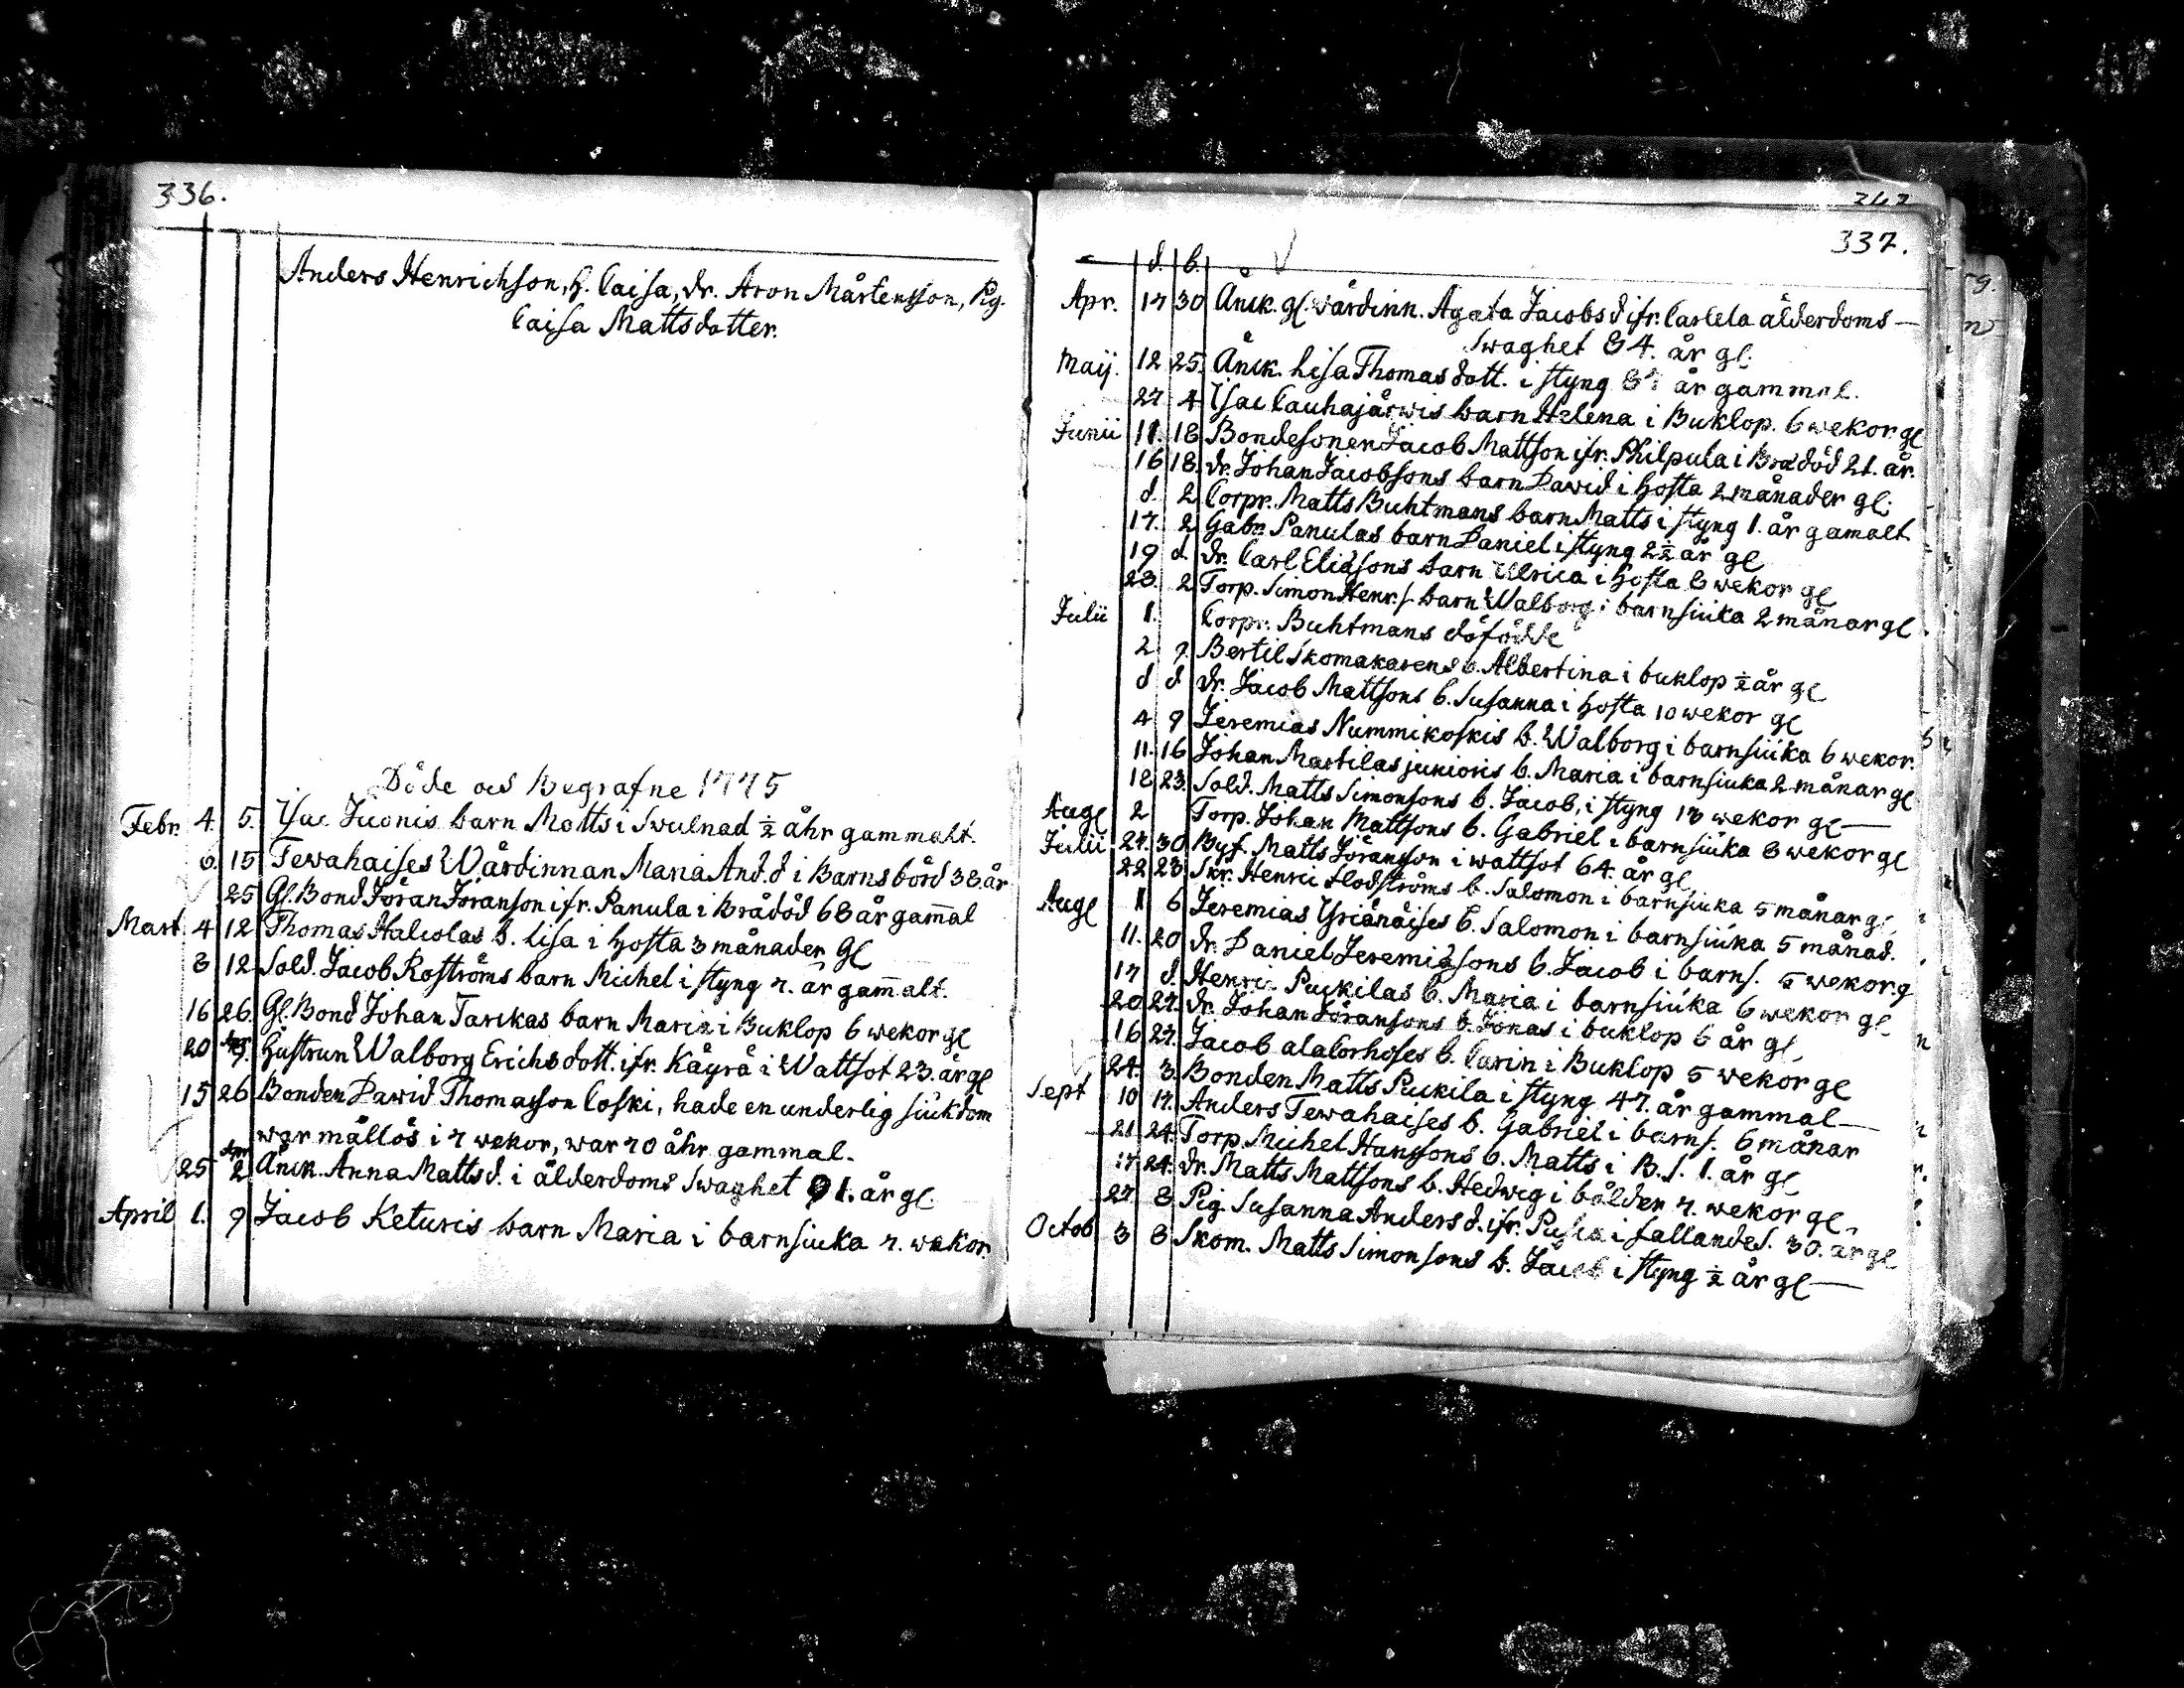 336.
Anders Henrichson, H. Caisa, dr. Aron Mårtensson, Pig.
Caisa Mattsdotter.
Döde och Begrafne 1775
Febr. 4. 5. Isac Juonis barn Matts i Swulnad ½ åhr gammalt.
6. 15 Tewahaises Wärdinnan Maria And.d i Barnsbörd 38. år
25 Gl. Bond Jöran Jöranson ifr. Panula i Brådöd 68 år gam̄al
Mart. 4 12 Thomas Halcolas b. Lisa i Hosta 3 månader gl
8 12 Sold. Jacob Roströms barn Michel i styng 7. år gam̄alt.
16 26. Gl. Bond Johan Tarckas barn Maria i Buklop 6 wekor gl
20 Apr 9. Hustrun Walborg Erichsdott. ifr. Käyrä i Wattsot 23. år gl
15 26 Bonden Dawid Thomasson Coski, hade en underlig siukdom
war mållös i 7 wekor, war 70 åhr gammal.
25 Apr 2 Änck. Anna Mattsd. i ålderdoms swaghet 91. år gl.
April 1. 9 Jacob Keturis barn Maria i barnsiuka 7. wekor.
337.
d. b.
Apr. 17 30 Änck. gl. wärdinn. Agata Jacobsd ifr. Carlela ålderdoms—
swaghet 84. år gl.
Maij. 12 25. Änck. Lisa Thomasdott. i styng år gammal.
27 4 Isac Cauhajärwis barn Helena i Buklop. 6 wekor. gl
Junii 11. 18 Bondesonen Jacob Mattson ifr. Philpula i Brådöd 21. år.
16 18. dr. Johan Jacobsons barn Dawid i Hosta 2 månader gl.
d. 2 Corpr. Matts Buhtmans barn Matts i styng 1. år gamalt
17. 2 Gabr. Panulas barn Daniel i styng 2½ år gl
19 d. dr. Carl Eliæsons barn Ulrica i Hosta 8 wekor gl
23. 2 Torp. Simon Henr.s barn Walborg i barnsiuka 2 månar gl
Julii 1. Corpr. Buhtmans döfödde
2 9. Bertil Skomakarens b. Albertina i buklop ½ år gl
d d dr. Jacob Mattsons b. Susanna i Hosta 10 wekor gl
4 9 Jeremias Nummikoskis b. Walborg i barnsiuka 6 wekor.
11. 16 Johan Martilas junioris b. Maria i barnsiuka 2 månar gl
18 23. Sold. Matts Simonsons b. Jacob, i styng 13 wekor gl—
Aug 2 Torp. Johan Mattsons b. Gabriel i barnsiuka 8 wekor gl
Julii 27. 30 Bys. Matts Jöransson i wattsot 64. år gl
22 23 Skr. Henric Flodströms b. Salomon i barnsiuka 5 månar gl
Aug 1 6 Jeremias Yriänäises b. Salomon i barnsiuka 5 månad.
11. 20 dr. Daniel Jeremiæsons b. Jacob i barns. 5 wekor. g
17 d. Henric Puckilas b. Maria i barnsiuka 6 wekor gl
20 27. dr. Johan Jöransons b. Jonas i buklop 6 år gl
16 27. Jacob alaCorhoses b. Carin i Buklop 5 wekor gl
24. 3. Bonden Matts Puckila i styng 47. år gammal—
Sept 10 17. Anders Tewahaises b. Gabriel i barns. 6 månar
21 24. Torp. Michel Hanssons b. Matts i B. s. 1. år gl
17. 24. dr. Matts Mattsons b. Hedwig i bålden 7. wekor gl.
27 8 Pig. Susanna Andersd. ifr. Pusa i fallandes. 30. år gl
Octob 3 8 Skom. Matts Simonsons b. Jacob i styng ½ år gl—